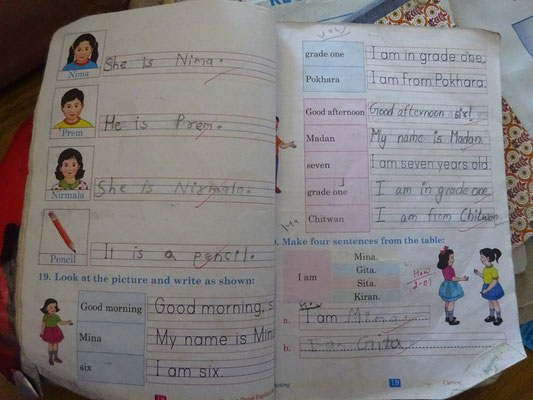 Nima
She is Nima.
Prem
He is Prem.
Nirmala
She is Nirmala.
Pencil
It is a pencil.
19. Look at the picture and write as shown:
Good morning
Good morning, s
Mina
My name is Min
six
I am six.
grade one
I am in grade one.
Pokhara
I am from Pokhara.
Good afternoon
Good afternoon sir
Madan
My name is Madan.
seven
I am seven years old
grade one
I am in grade one
Chitwan
I am from Chitwan
. Make four sentences from the table:
I am
Mina.
Gita.
Sita.
Kiran.
a. I am Mina.
b. I am Gita
19